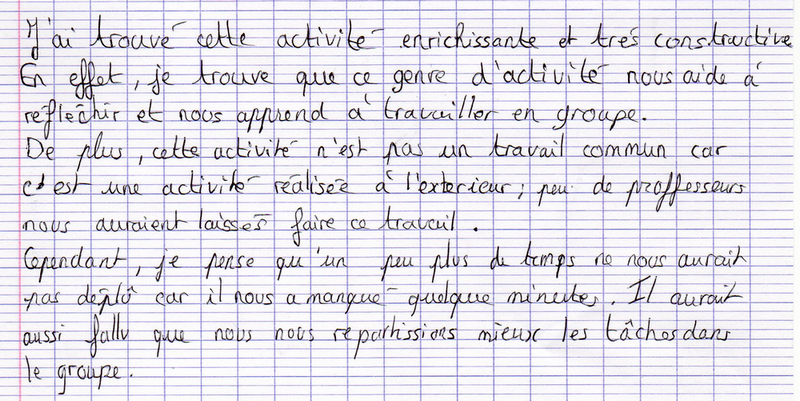 J'ai trouvé cette activité enrichissante et très constructive
En effet, je trouve que ce genre d'activité nous aide à
réfléchir et nous apprend à travailler en groupe.
De plus, cette activité n'est pas un travail commun car
c'est une activité réalisée à l'extérieur ; peu de proffesseurs
nous auraient laissés faire ce travail.
Cependant, je pense qu'un peu plus de temps ne nous aurait
pas déplû car il nous a manqué quelque minutes. Il aurait
aussi fallu que nous nous répartissions mieux les tâches dans
le groupe.